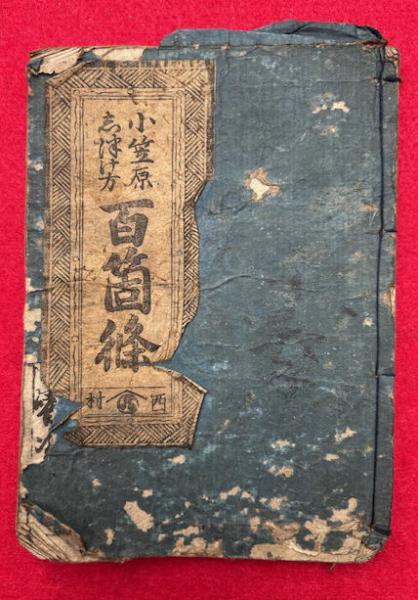 小笠原
志津け方
百箇條
西村